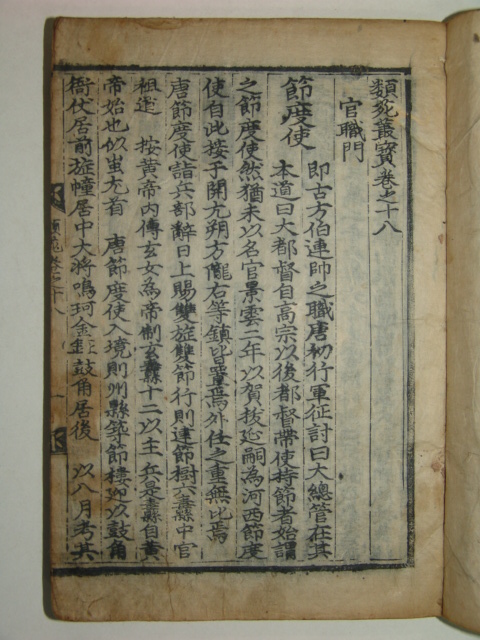 類苑叢寶卷之十八
官職門
節度使
即古方伯連帥之職唐初行軍征討曰大總管在其
本道曰大都督自高宗以後都督帶使持節者始謂
之節度使然猶未以名官景雲二年以賀拔延嗣為河西節度
使自此接于開元朔方隴右等鎮皆置焉外任之重無比焉
唐節度使詣兵部辭日上賜雙旌雙節行則建節樹六纛中官
祖 按黃帝內傳玄女為帝制玄纛十二以主兵是纛自黃
帝始也以蚩尤首 唐節度使入境則州縣筑節樓迎以鼓角
衙仗居前旌幢居中大將鳴珂金鉦鼓角居後 以八月考其
類苑卷之十八 一